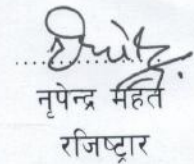 नृपेन्द्र महत
रजिष्ट्रार